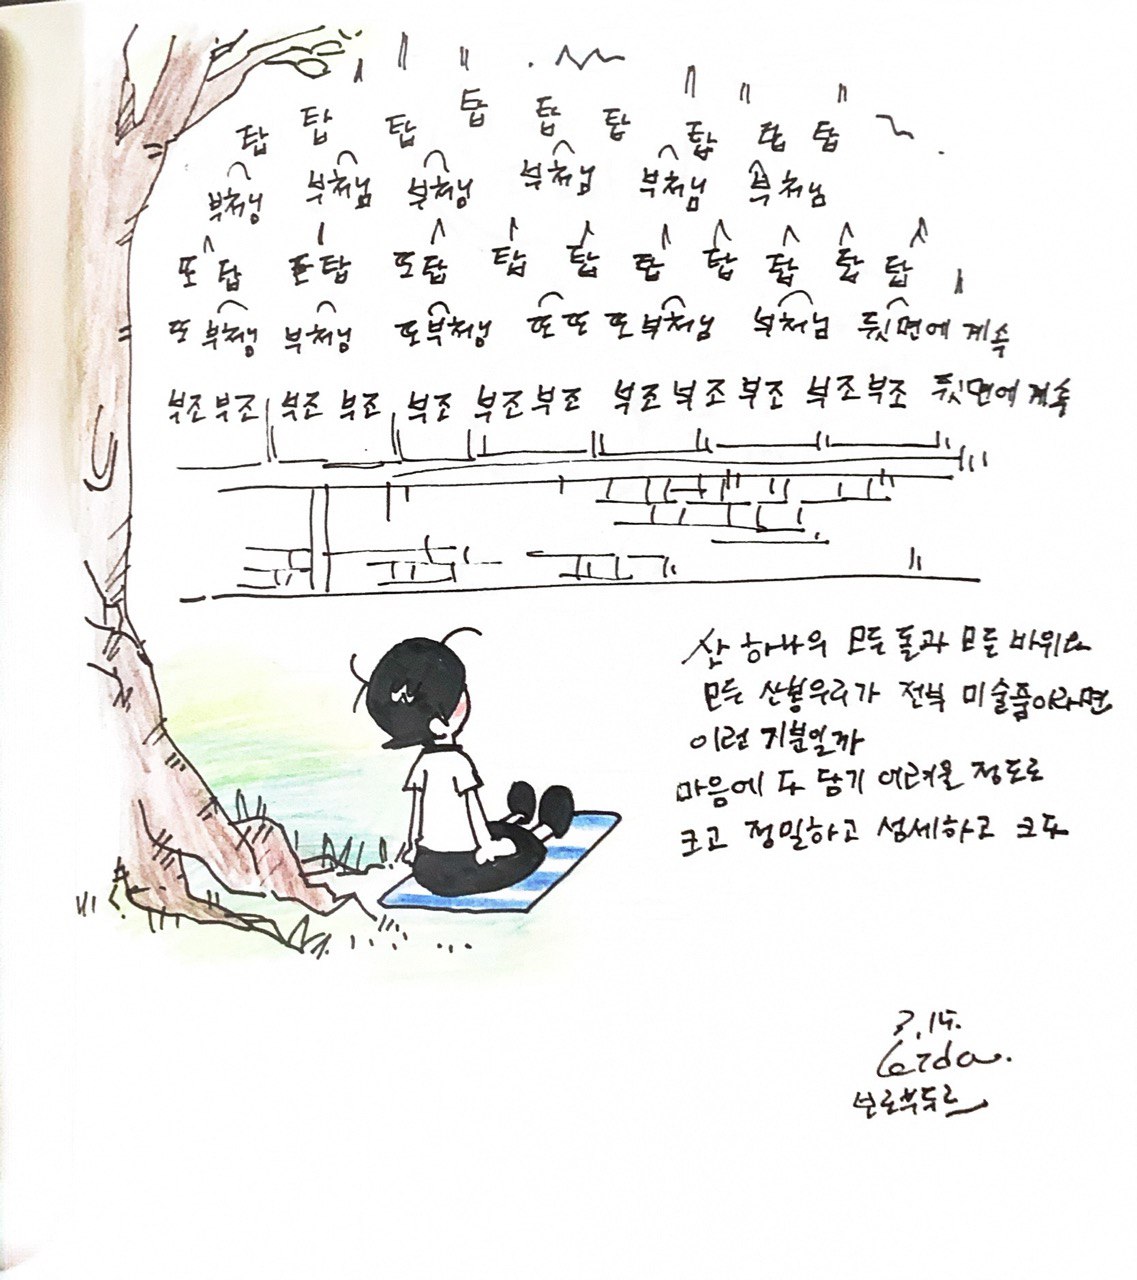 탑 탑 탑 탑 탑 탑 탑 탑 탑
부처님 부처님 부처님 부처님 부처님 부처님
또 탑 또 탑 또 탑 탑 탑 탑 탑 탑 탑 탑
또 부처님 부처님 또 부처님 또 또 또 부처님 부처님 뒷면에 계속
부조 부조 부조 부조 부조 부조 부조 부조 부조 부조 부조 부조 뒷면에 계속
산 하나의 모든 돌과 모든 바위와
모든 산봉우리가 전부 미술품이라면
이런 기분일까
마음에 다 담기 어려울 정도로
크고 정밀하고 섬세하고 크다
3.15.
보로부두르